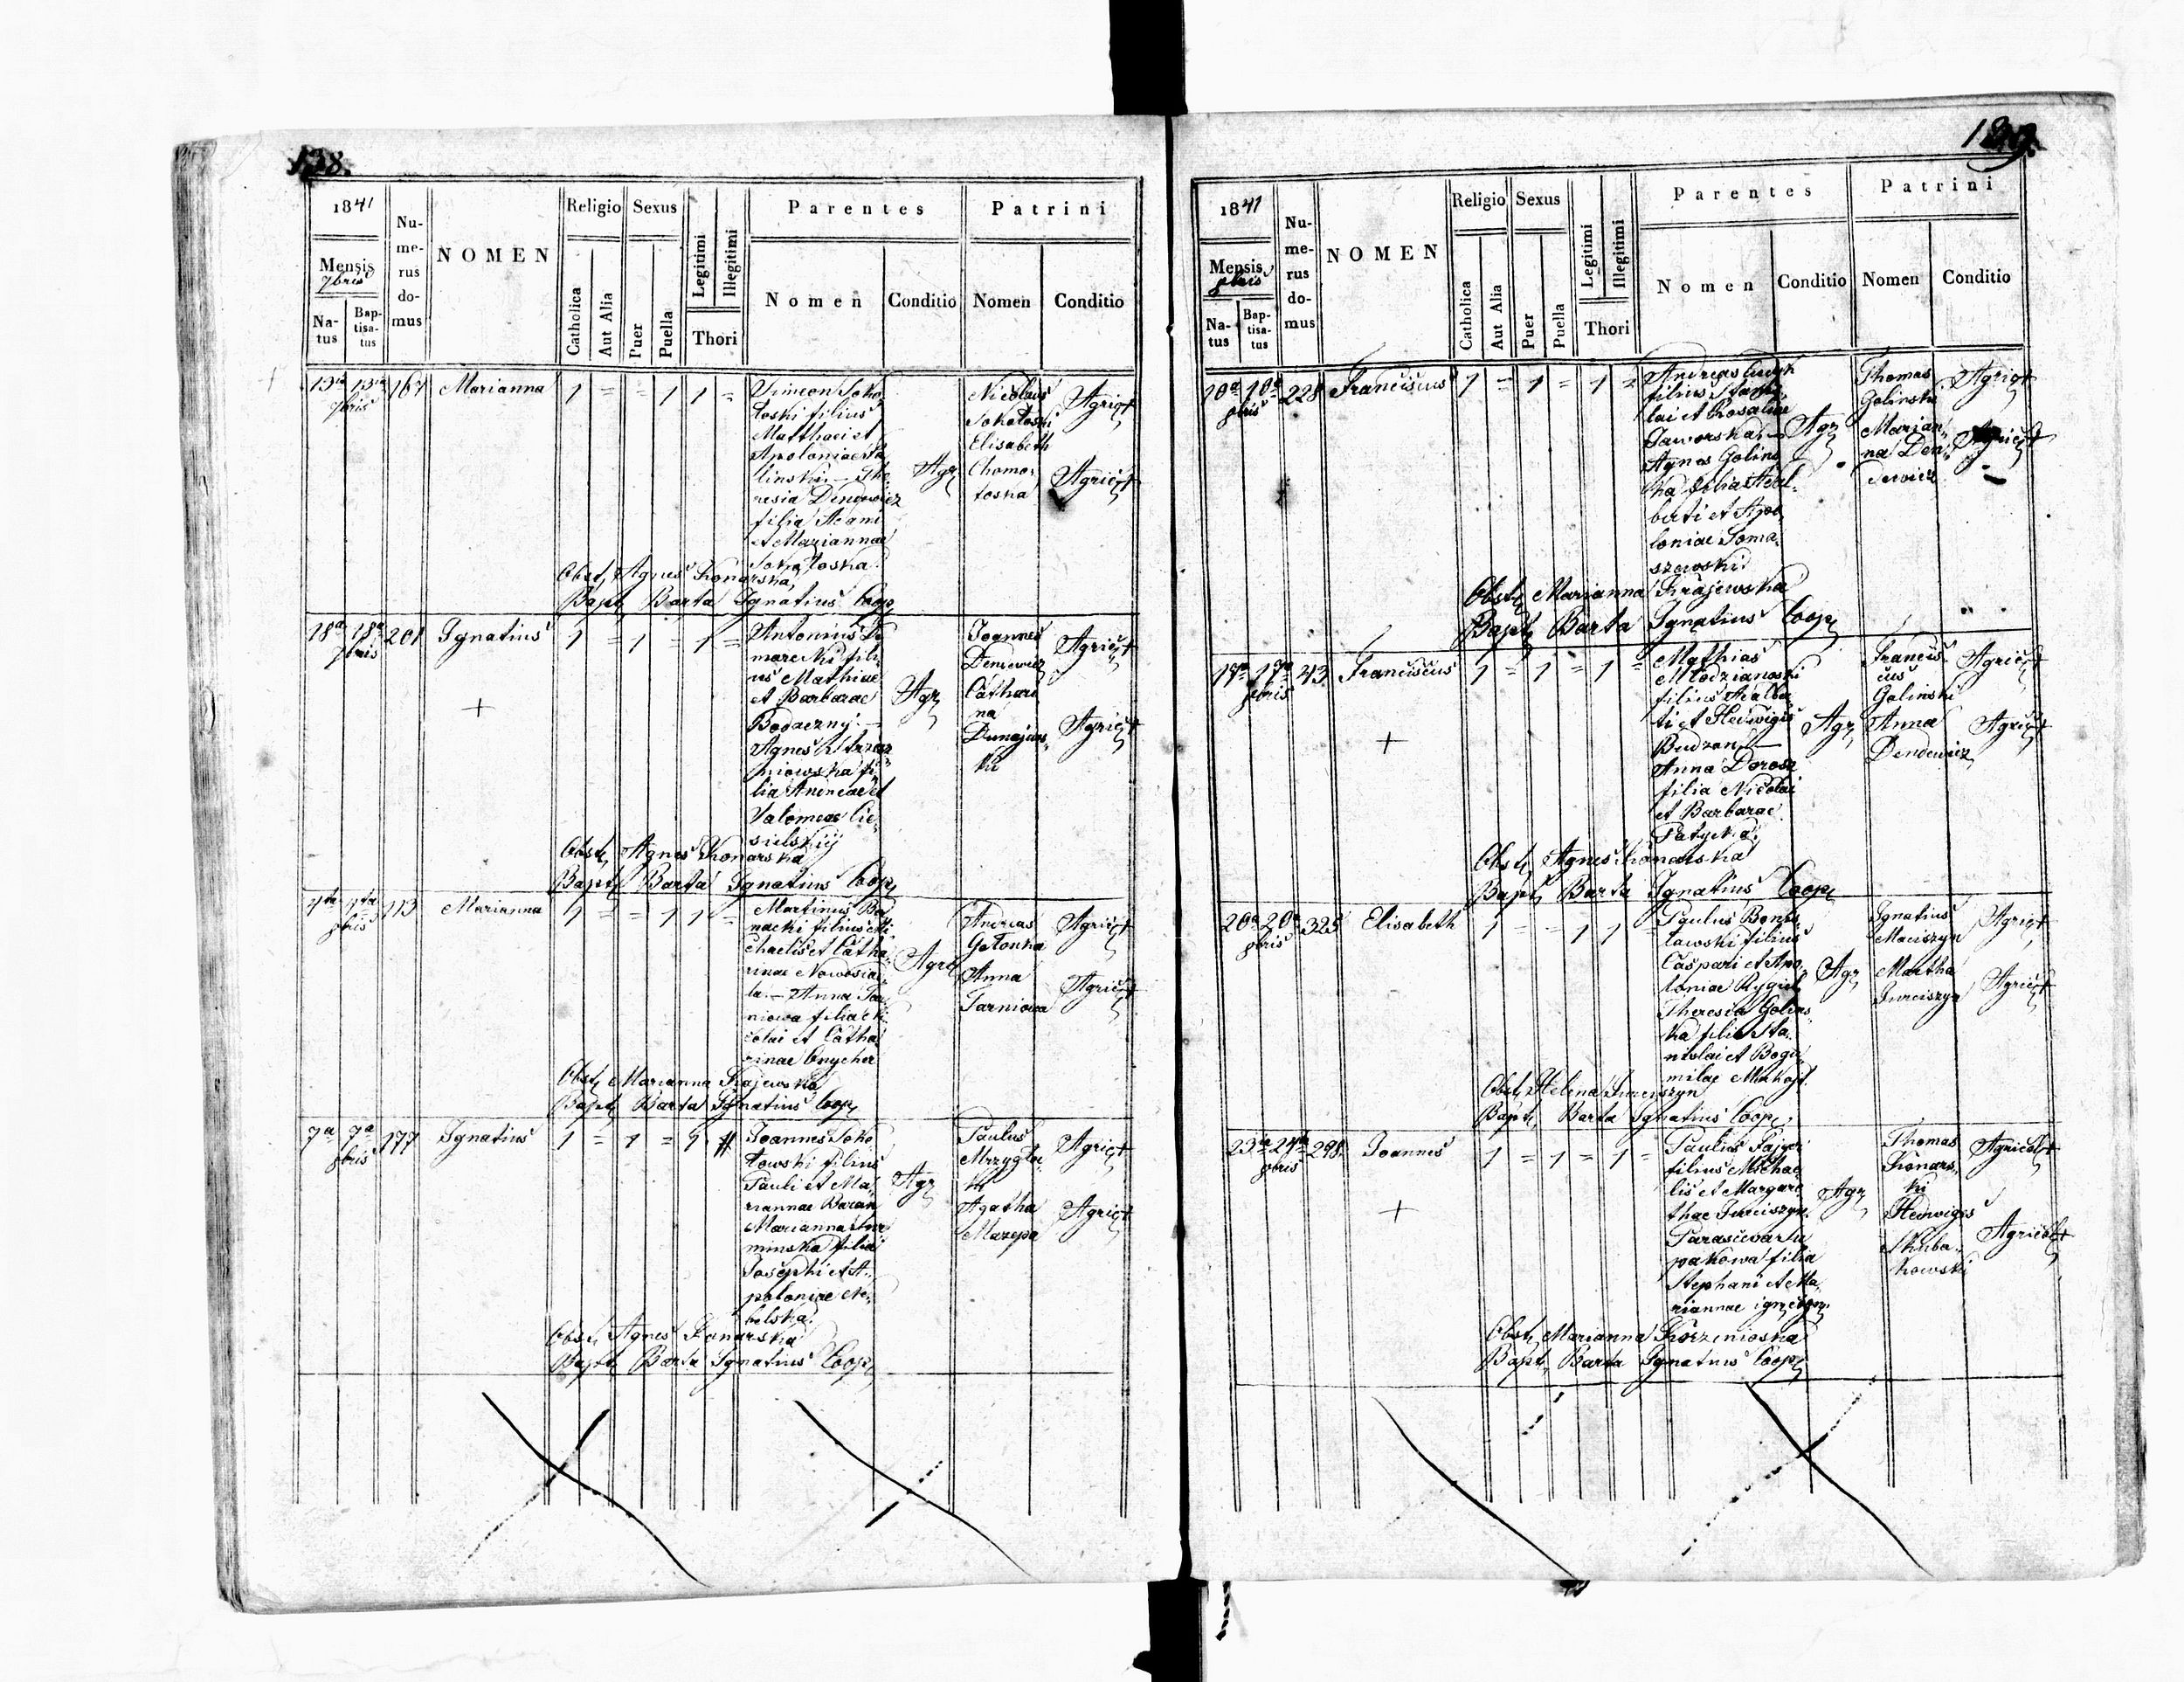 138.
1841
Mensis
7bris
Na-
tus
Bap-
tisa-
tus
Nu-
me-
rus
do-
mus
NOMEN
Religio
Catholica
Aut Alia
Sexus
Puer
Puella
Legitimi
Illegitimi
Thori
Parentes
Nomen
Conditio
Patrini
Nomen
Conditio
13ta 13ta 167 Marianna 1 = = 1 1 =
7bris
Simeon Soko
łoski filius
Matthaei et
Apoloniae
linski. – The
resia Dendewicz
filia Adami
et Mariannae
Sokołoska
Agr
Nicolaus
Sokołoski
Elisabeth
Chomo
toska
Agric
Agric
Obst Agnes Konarska
Bapt Barta Ignatius Coop
18a 18a 201 Ignatius 1 = 1 = 1 =
7bris
Antonius
marecki fili
us Mathiae
et Barbarae
Bogaczny. –
Agnes
niowska fi
lia Andreae et
Salomeae Cie
sielskij
Agr
Joannes
Denewicz
Cathari
na
Dunajew
ski
Agric
Agric
Obst Agnes Konarska
Bapt Barta Ignatius Coop
4ta 4ta 113 Marianna 1 = = 1 1 =
8bris
Martinus Ba
nacki filius Mi
chaelis et Catha
rinae Nowosia
la. – Anna Tar
niowa filia Ni
colai et Catha
rinae Onycher
Agr
Andreas
Gołonka
Anna
Tarniowa
Agric
Agric
Obst Marianna Krajewska
Bapt Barta Ignatius Coop
7a 7a 177 Ignatius 1 = 1 = 1
8bris
Joannes Soko
łowski filius
Pauli et Ma
riannae Baran
Marianna
minska filia
Josephi et A
poloniae Ne
belska
Agr
Paulus
Mrzygło
Agatha
Mazepa
Agric
Agric
Obst Agnes Konarska
Bapt Barta Ignatius Coop
139.
1841
Mensis
8bris
Na-
tus
Bap-
tisa-
tus
Nu-
me-
rus
do-
mus
NOMEN
Religio
Catholica
Aut Alia
Sexus
Puer
Puella
Legitimi
Illegitimi
Thori
Parentes
Nomen
Conditio
Patrini
Nomen
Conditio
10a 10a 228 Franciscus 1 = 1 = 1 =
8bris
Andreas
filius Stanis
lai et Rosaliae
Jaworska. –
Agnes Golins
ka filia Adal
berti et Apol
loniae Toma
szewski
Agr
Thomas
Golinski
Marian
na Den
dewicz
Agric
Agric
Obst Marianna Krajewska
Bapt Barta Ignatius Coop
17a 17a 43 Franciscus 1 = 1 = 1 =
8bris
Mathias
Młodzianoski
filius Adalber
ti et Hedwigis
Budzan. –
Anna Dorosz
filia Nicolai
et Barbarae
Patycka
Agr
Francis
cus
Galinski
Anna
Dendewicz
Agric
Agric
Obst Agnes Konarska
Bapt Barta Ignatius Coop
20a 20a 325 Elisabeth 1 = = 1 1 =
8bris
Paulus
lawski filius
Caspari et Apo
loniae Rygiel
Theresia Golins
ka filia Sta
nislai et Bogu
milae
Agr
Ignatius
Maciszyn
Martha
Jurciszyn
Agric
Agric
Obst Helena Jurciszyn
Bapt Barta Ignatius Coop
23ia 24ta 298 Joannes 1 = 1 = 1 =
8bris
Paulus
filius Michae
lis et Margare
thae Jurciszyn
Parascevia
pakowa filia
Stephani et Ma
riannae
Agr
Thomas
Konars
ki
Hedwigis
Skuba
kowski
Agricol
Agricol
Obst Marianna Korzenioska
Bapt Barta Ignatius Coop